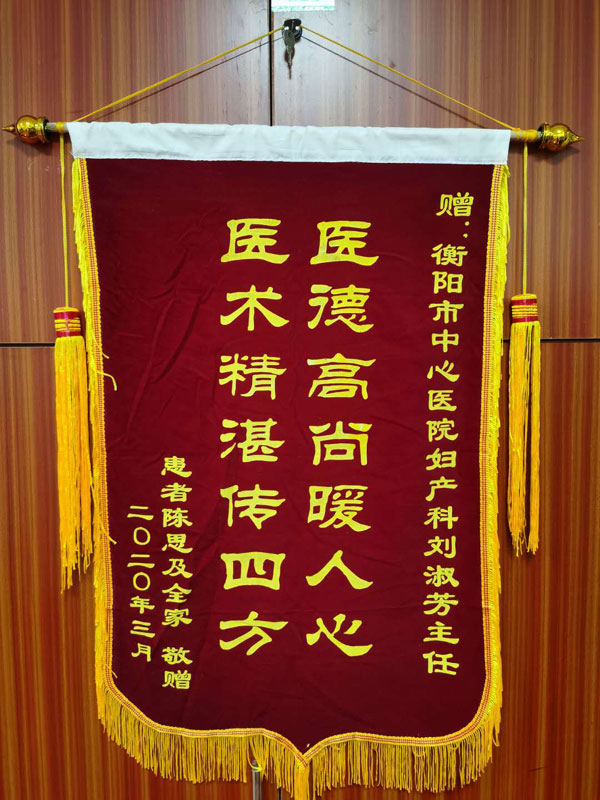 赠：衡阳市中心医院妇产科刘淑芳主任
医德高尚暖人心
医术精湛传四方
患者陈思及全家 敬赠
二〇二〇年三月